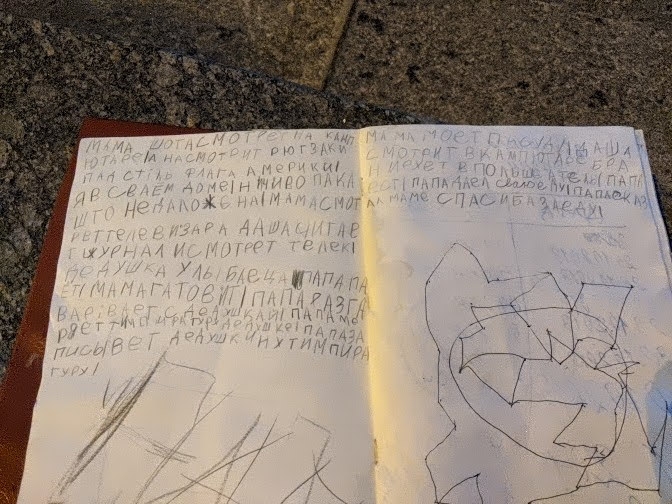 МАМА ШОТА СМОТРЕТ НА КАМП
ЮТАРЕ IА НАСМОТРИТ РЮГЗАКИ
ПАД СТІЛЬ ФЛАГА АМЕРИКИ I
Я В СВАЕМ ДОМЕ I НИЧИВО ПАКА
ШТО НЕДАЛОЖЄНА I МАМА СМОТ
РЕТ ТЕЛЕВИЗАРА ДАША ЧИТАЕ
Т ЖУРНАЛ И СМОТРЕТ ТЕЛЕК I
ДЕДУШКА УЛЫБАЕЦА ПАПА ПА
ЕТ I МАМА ГАТОВІТ I ПАПА РАЗГА
ВАРІВАЕТ С ДЕДУШКАЙ I ПАПА МЕ
РЯЕТ ТИМПИРАТУРУ ДЕДУШКЕ I ПАПА ЗА
ПИСЫВЕТ ДЕДУШКИНУ ТИМПИРА
ТУРУ I
МАМА МОЕТ ПАСУДУ I ДАША
СМОТРИТ В КАМПЮТАРЕ БРА
Н И ЕХЕТ В ПОЛЬШЕ А ТЕЛЬ I ПАП I
ЕСТ I ПАПА ДАЕЛ I ПАПА СКАЗ
АЛ МАМЕ СПАСИБА ЗА ЕДУ I